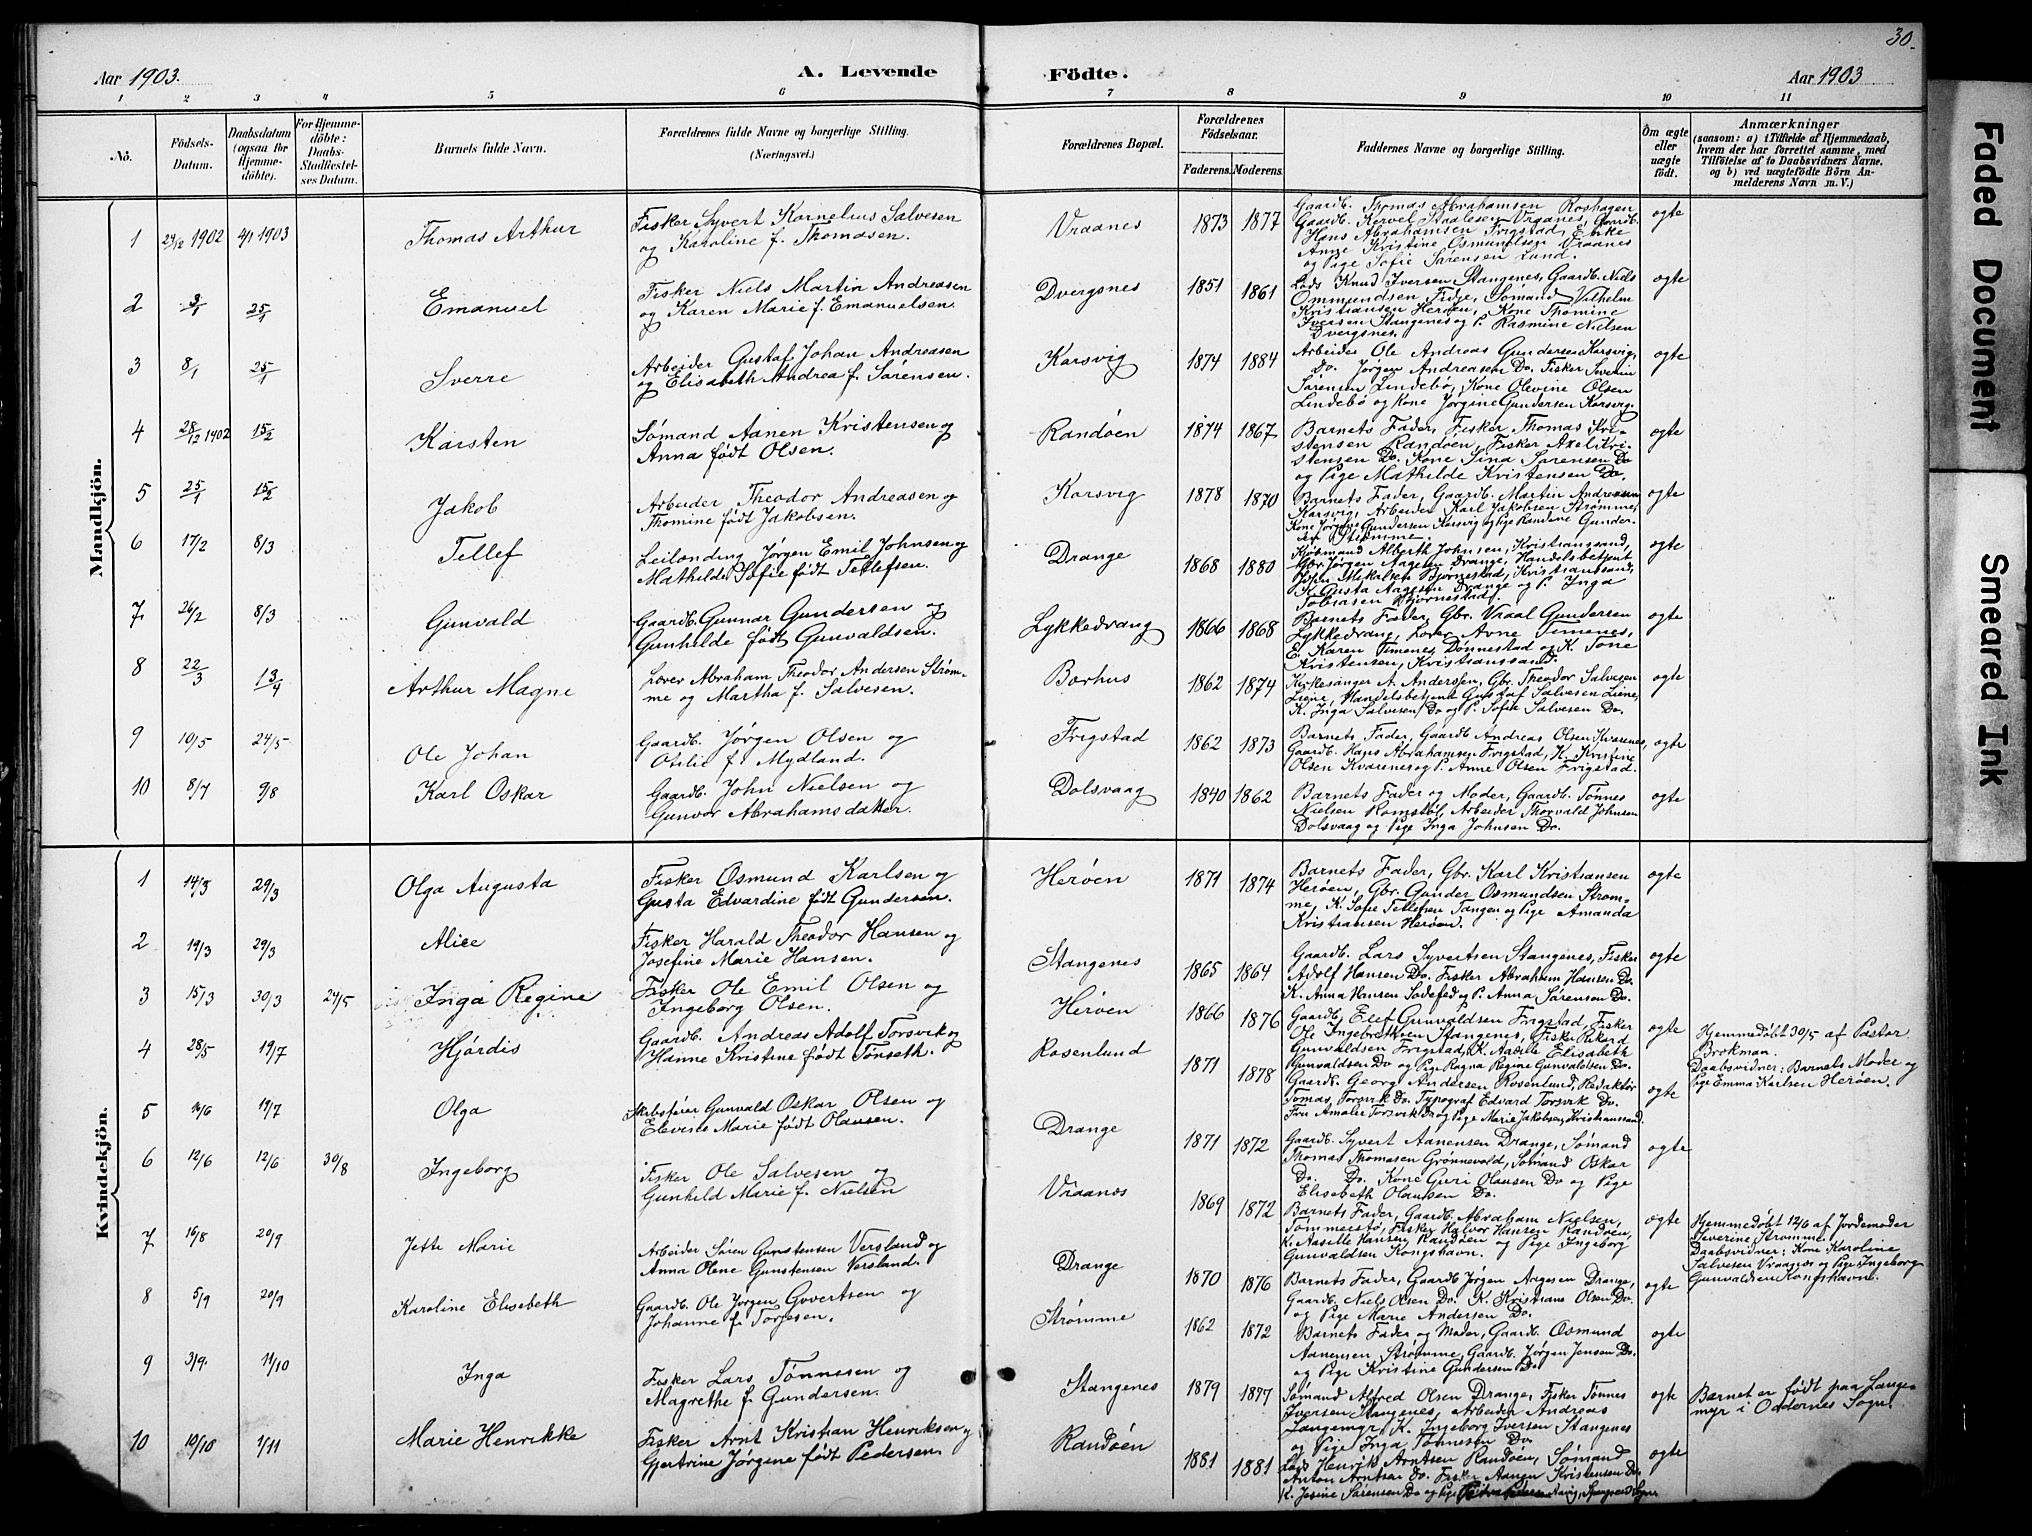 30.
Aar 1903.
A. Levende
Födte.
Aar 1903
1 2 3 4 5 6 7 8 9 10 11
No.
Födsels-Datum.
Daabsdatum (ogsaa for Hjemmedöbte).
For Hjemmedöbte: Daabs-Stadfestelses Datum.
Barnets fulde Navn.
Forældrenes fulde Navne og borgerlige Stilling.
(Næringsvei.)
Forældrenes Bopæl.
Forældrenes Födselsaar.
Faderens. Moderens.
Faddernes Navne og borgerlige Stilling.
Om ægte eller uægte födt.
Anmærkninger
(saasom: a) i Tilfælde af Hjemmedaab, hvem der har forrettet samme, med Tilföielse af to Daabsvidners Navne, og b) ved uægtefödte Börn Anmelderens Navn m. V.)
Mandkjön.
1 24/12 1902 4/1 1903 Thomas Arthur
Fisker Syvert Kornelius Salvesen
og Karoline f. Thomasen.
Vraanes 1873 1877
Gaardb. Thomas Abrahamsen Roshagen
Gaardb. Kervel Staalesen Vraanes, Gaardb.
Hans Abrahamsen Frigstad, Enke
Anne Kristine Osmundsen Vraanes
og Pige Sofie Sørensen Lund.
ægte
2 3/1 25/1 Emanuel
Fisker Niels Martin Andreasen
og Karen Marie f. Emanuelsen.
Dvergsnes 1851 1861
Lods Knud Iversen Stangenes, Gaardb. Niels
Ommundsen Fidje, Sømand Vilhelm
Kristiansen Herøen, Kone Thomine
Iversen Stangenes og P. Rasmine Nielsen
Dvergsnes.
ægte
3 8/1 25/1 Sverre
Arbeider Gustaf Johan Andreasen
og Elisabeth Andrea f. Sørensen.
Korsvig 1874 1884
Arbeider Ole Andreas Gundersen Korsvig,
Do. Jørgen Andreasen Do. Fisker Severin
Sørensen Lindebø, Kone Olevine Olsen
Lindebø og Kone Jørgine Gundersen Korsvig.
ægte
4 28/12 1902 15/2 Karsten
Sømand Aanen Kristensen og
Anna født Olsen.
Randøen 1874 1867
Barnets Fader, Fisker Thomas Kri-
stensen Randøen, Fisker Axel Kri-
stensen Do. Kone Sina Sørensen Do
og Pige Mathilde Kristensen Do.
ægte
5 25/1 15/2 Jakob
Arbeider Theodor Andreasen og
Thomine født Jakobsen.
Korsvig 1878 1870
Barnets Fader, Gaardb. Martin Andreasen
Korsvig, Arbeider Karl Jakobsen Strømme,
Kone Jørgine Gundersen Korsvig og Pige Randine Gunder-
sen Strømme.
ægte
6 17/2 8/3 Tellef
Leilending Jørgen Emil Johnsen og
Mathilde Sofie født Tellefsen.
Drange 1868 1880
Kjøbmand Alberth Johnsen, Kristianssand,
Gbr. Jørgen Aagesen Drange, Handelsbetjent
John Mikalsen Bjørnestad, Kristianssand,
K. Gusta Aagesen Drange og P. Inga
Tobiasen Bjørnestad.
ægte
7 26/2 8/3 Gunvald
Gaardb. Gunnar Gundersen og
Gunhilde født Gunvaldsen.
Lykkedrang 1866 1868
Barnets Fader, Gbr. Vraal Gundersen
Lykkedrang, Lover Avne Timenes,
E. Karen Timenes, Dønnestad og K. Tone
Kristensen, Kristianssand.
ægte
8 22/3 13/4 Arthur Magne
Lover Abraham Theodor Andersen Strøm-
me og Martha f. Salvesen.
Børhus 1862 1874
Kirkesanger A. Anderssen, Gbr. Theodor Salvesen
Liene, Handelsbetjent Gustaf Salvesen Liene,
K. Inga Salvesen Do og P. Sofie Salvesen Do.
ægte
9 10/5 24/5 Ole Johan
Gaardb. Jørgen Olsen og
Otilie f. Mydland.
Frigstad 1862 1873
Barnets Fader, Gaardb Andreas Olsen Kvarenes,
Gaardb. Hans Abrahamsen Frigstad, K. Kristine
Olsen Kvarenes og P. Anne Olsen Frigstad.
ægte
10 8/7 9/8 Karl Oskar
Gaardb. John Nielsen og
Gunvor Abrahamsdatter.
Dolsvaag 1840 1862
Barnets Fader og Moder, Gaardb. Tønnes
Nielsen Romstøl, Arbeider Thorvald Johnsen
Dolsvaag og Pige Inga Johnsen Do.
ægte
Kvindekjön.
1 14/3 29/3 Olga Augusta
Fisker Osmund Karlsen og
Gusta Edvardine født Gundersen.
Herøen 1871 1874
Barnets Fader, Gbr. Karl Kristiansen
Herøen, Gbr. Gunder Osmundsen Strøm-
me, K. Sofie Tellefsen Tangen og Pige Amanda
Kristiansen Herøen.
ægte
2 19/3 29/3 Alice
Fisker Harald Theodor Hansen og
Josefine Marie Hansen.
Stangenes 1865 1864
Gaardb. Lars Syvertsen Stangenes, Fisker
Adolf Hansen Do. Fisker Abraham Hansen Do.
K. Anna Hansen Sodefed og P. Anna Sørensen Do.
ægte
3 15/3 30/3 24/5 Inga Regine
Fisker Ole Emil Olsen og
Ingeborg Olsen.
Herøen 1866 1876
Gaardb. Elef Gunvaldsen Frigstad, Fisker
Ole Ingebretsen Stangenes, Fisker Rikard
Gunvaldsen Frigstad, K. Aasille Elisabeth
Gunvaldsen Do og Pige Ragna Regine Gunvaldsen Do.
ægte
Hjemmedøbt 30/5 af Pastor
Brokman.
Daabsvidner: Barnets Moder og
Pige Emma Karlsen Herøen.
4 28/5 19/7 Hjørdis
Gaardb. Andreas Adolf Torsvik og
Hanne Kristine født Tønseth.
Rosenlund 1871 1878
Gaardb. Georg Andersen Rosenlund, Redaktør
Tomas Torsvik Do. Typograf Edvard Torsvik Do.
Fru Amalie Torsvik Do og Pige Marie Jakobsen, Kristianssand.
ægte
5 14/6 19/7 Olga
Skibsfører Gunvald Oskar Olsen og
Elevine Marie født Olausen.
Drange 1871 1872
Gaardb. Syvert Aanensen Drange, Sømand
Thomas Thomasen Grønnevold, Sømand Oskar
Do. Do. Kone Guri Olausen Do og Pige
Elisabeth Olausen Do.
ægte
6 12/6 12/6 30/8 Ingeborg
Fisker Ole Salvesen og
Gunhild Marie f. Nielsen
Vraanes 1869 1872
Barnets Fader, Gaardb. Abraham Nielsen,
Tømmerstø, Fisker Halvor Hansen Randøen,
K. Aasille Hansen Randøen og Pige Ingeborg
Gunvaldsen Kongshavn.
ægte
Hjemmedøbt 12/6 af Jordemoder
Severine Strømme.
Daabsvidner: Kone Karoline
Salvesen Vraanes og Pige Ingeborg
Gunvaldsen Kongshavn.
7 16/8 20/9 Jette Marie
Arbeider Søren Gunstensen Versland og
Anna Olene Gunstensen Versland.
Drange 1870 1876
Barnets Fader, Gaardb Jørgen Aagesen Drange,
Gaardb. Niels Olsen Do. K. Kristiane Olsen Do.
og Pige Marie Andersen Do.
ægte
8 5/9 20/9 Karoline Elisebeth
Gaardb. Ole Jørgen Govertsen og
Johanne f. Torjesen.
Strømme 1862 1872
Barnets Fader og Moder, Gaardb. Osmund
Aanensen Strømme, Gaardb. Jørgen Jensen Do.
og Pige Kristine Gundersen Do.
ægte
9 3/9. 11/10 Inga
Fisker Lars Tønnesen og
Magrethe f. Gundersen.
Stangenes 1879 1877
Sømand Alfred Olsen Drange, Fisker Tønnes
Iversen Stangenes, Arbeider Andreas
Langemyr, K. Ingeborg Iversen Stangenes
og Pige Inga Tønnesen Do.
ægte
Barnet er født paa Lange-
myr i Oddernes Sogn.
10 10/10 1/11 Marie Henrikke
Fisker Arnt Kristian Henriksen og
Gjertrine Jørgine født Pedersen.
Randøen 1881 1881
Lods Henrik Arntsen Randøen, Sømand
Anton Arntsen Do. Fisker Aanen Kristensen Do.
K. Josine Sørensen Do og Pige Petra Pedersen
ægte
Faded Document
Smeared Ink